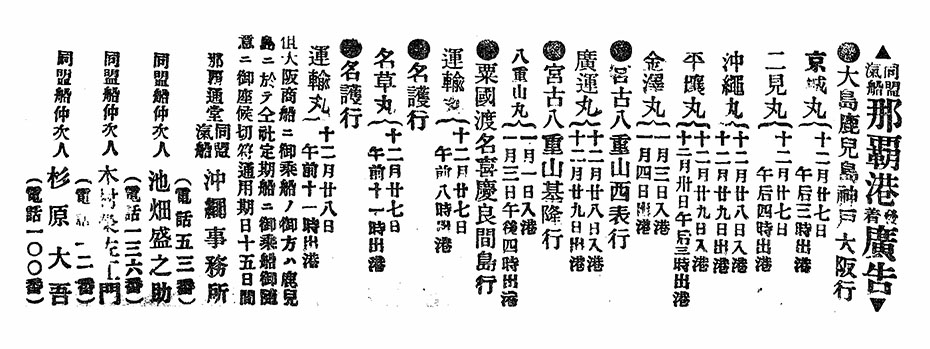 ▲同盟汽船那覇港發着廣告▼
●大島鹿兒島神戸大阪行
京城丸{十二月廿七日
午后三時出港
二見丸{十二月廿七日
午后四時出港
沖繩丸{十二月廿八日入港
十二月廿九日出港
平壤丸{十二月廿九日入港
十二月卅日午后三時出港
金澤丸{一月三日入港
一月四日出港
●宮古八重山西表行
廣運丸{十二月廿八日入港
十二月廿九日出港
●宮古八重山基隆行
八重山丸{一月一日入港
一月三日午後四時出港
●粟國渡名喜慶良間島行
運輸丸{十二月廿七日
午前八時出港
●名護行
名草丸{十二月廿七日
午前十一時出港
●名護行
運輸丸{十二月廿八日
午前十一時出港
但大阪商船ニ御乘船ノ御方ハ鹿兒
島ニ於テ仝社定期船ニ御乘船御隨
意ニ御座候切符通用期日十五日間
那覇通堂同盟汽船沖繩事務所
(電話五三番)
同盟船仲次人 池畑盛之助
(電話一三六番)
同盟船仲次人 木村榮左エ門
(電話一二番)
同盟船仲次人 杉原大吾
(電話一〇〇番)